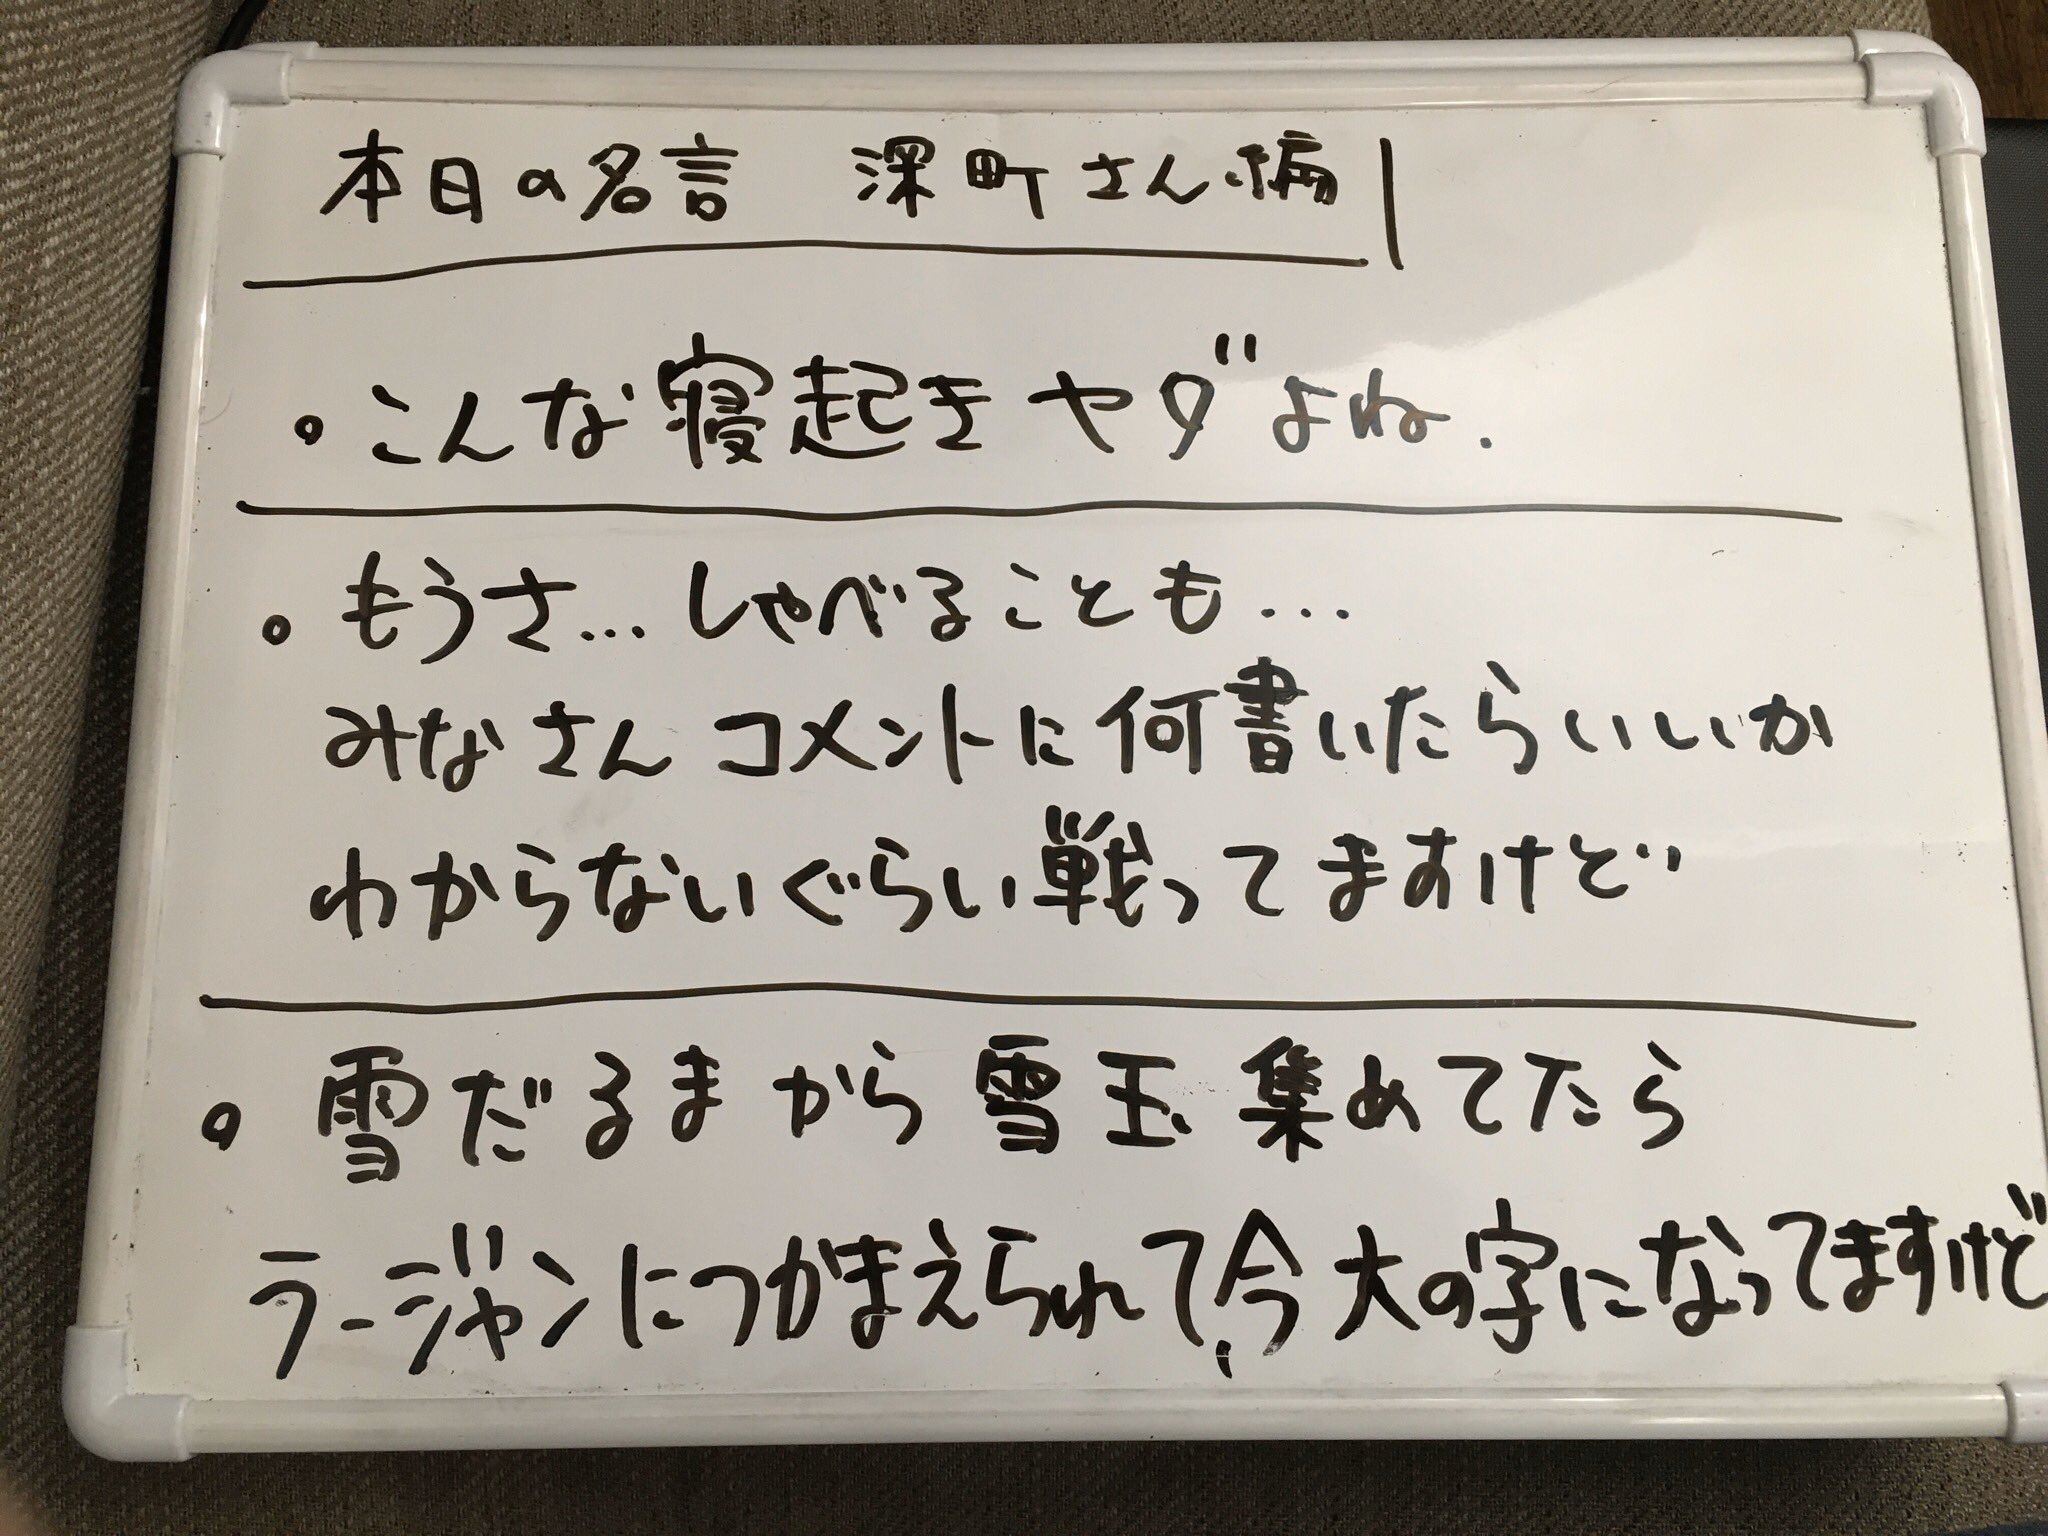 本日の名言 深町さん編
・こんな寝起きヤダよね.
・もうさ…しゃべることも…
みなさんコメントに何書いたらいいか
わからないぐらい戦ってますけど
・雪だるまから雪玉集めてたら
ラージャンにつかまえられて、今大の字になってますけど